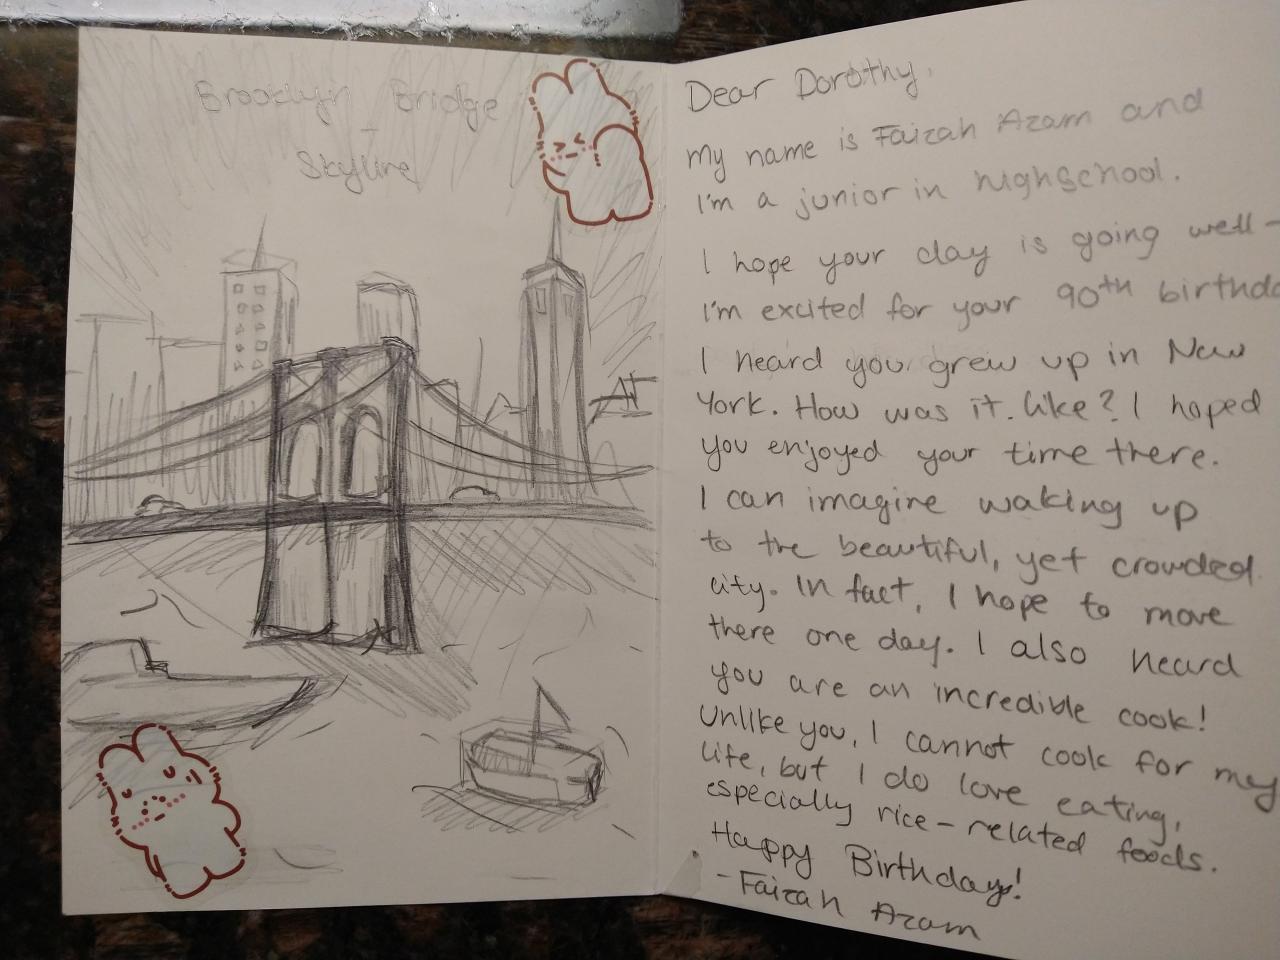 Brooklyn Bridge
-
Skyline
Dear Dorothy,
My name is Faizah Azam and
I'm a junior in highschool.
I hope your day is going well-
I'm excited for your 90th birthda
I heard you grew up in New
York. How was it like? I hoped
you enjoyed your time there.
I can imagine waking up
to the beautiful, yet crowded
city. In fact, I hope to move
there one day. I also heard
you are an incredible cook!
Unlike you, I cannot cook for my
life, but I do love eating,
especially rice-related foods.
Happy Birthday!
-Faizah Azam